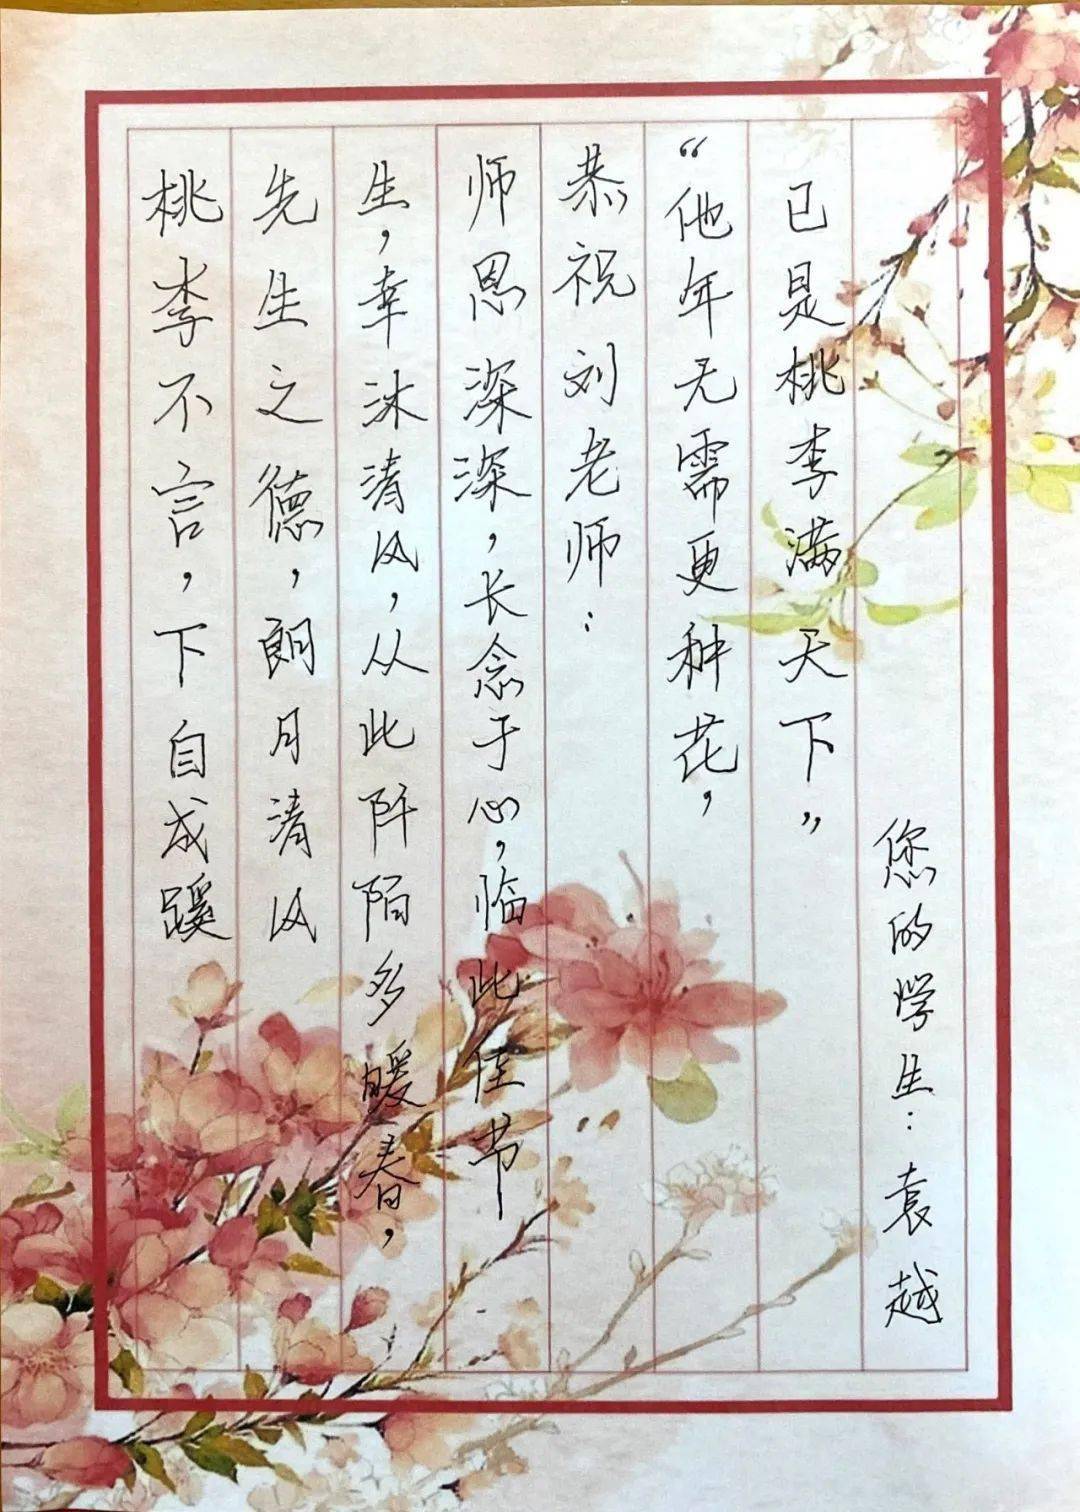 桃李不言，下自成蹊
先生之德，朗月清风
生，幸沐清风，从此阡陌多暖春，
师恩深深，长念于心，临此佳节
恭祝刘老师：
“他年无需更种花，
已是桃李满天下”
您的学生：袁越